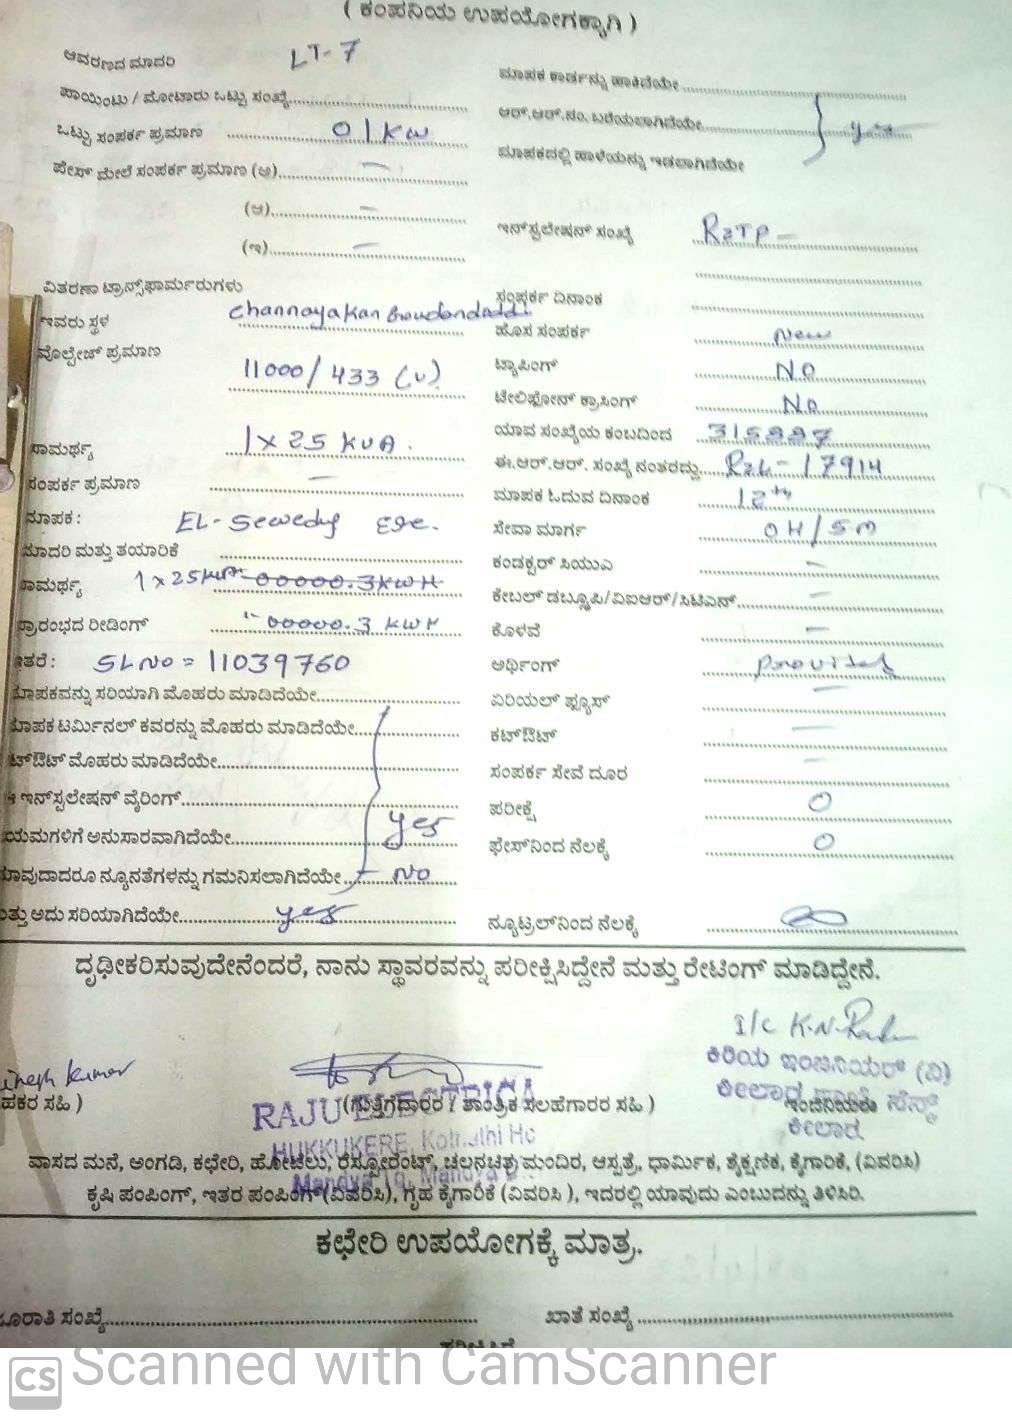 ( ಕಂಪನಿಯ ಉಪಯೋಗಕ್ಕಾಗಿ )
ಆವರಣದ ಮಾದರಿ LT-7
ಪಾಯಿಂಟು / ಮೋಟಾರು ಒಟ್ಟು ಸಂಖ್ಯೆ
ಒಟ್ಟು ಸಂಪರ್ಕ ಪ್ರಮಾಣ 01 KW
ಪೇಸ್ ಮೇಲೆ ಸಂಪರ್ಕ ಪ್ರಮಾಣ (ಅ) —
(ಆ) —
(ಇ) —
ವಿತರಣಾ ಟ್ರಾನ್ಸ್‌ಫಾರ್ಮರುಗಳು
ಇವರು ಸ್ಥಳ
ವೊಲ್ಟೇಜ್ ಪ್ರಮಾಣ 11000/433 (V)
ಸಾಮರ್ಥ್ಯ 1 X 25 KVA.
ಸಂಪರ್ಕ ಪ್ರಮಾಣ —
ಮಾಪಕ : EL-Sewedy
ಮಾದರಿ ಮತ್ತು ತಯಾರಿಕೆ
ಸಾಮರ್ಥ್ಯ 1 x 25 KVA 00000.3 KWH
ಪ್ರಾರಂಭದ ರೀಡಿಂಗ್ 00000.3 KWH
ಇತರೆ : SL No = 11039760
ಮಾಪಕವನ್ನು ಸರಿಯಾಗಿ ಮೊಹರು ಮಾಡಿದೆಯೇ
ಮಾಪಕ ಟರ್ಮಿನಲ್ ಕವರನ್ನು ಮೊಹರು ಮಾಡಿದೆಯೇ
ಟ್‌ಔಟ್ ಮೊಹರು ಮಾಡಿದೆಯೇ
ಇನ್‌ಸ್ಟಲೇಷನ್ ವೈರಿಂಗ್
ಯಮಗಳಿಗೆ ಅನುಸಾರವಾಗಿದೆಯೇ yes
ಯಾವುದಾದರೂ ನ್ಯೂನತೆಗಳನ್ನು ಗಮನಿಸಲಾಗಿದೆಯೇ No
ಮತ್ತು ಅದು ಸರಿಯಾಗಿದೆಯೇ yes
ಮಾಪಕ ಕಾರ್ಡನ್ನು ಹಾಕಿದೆಯೇ
ಆರ್.ಆರ್.ನಂ. ಬರೆಯಲಾಗಿದೆಯೇ yes
ಮಾಪಕದಲ್ಲಿ ಹಾಳೆಯನ್ನು ಇಡಲಾಗಿದೆಯೇ
ಇನ್‌ಸ್ಟಲೇಷನ್ ಸಂಖ್ಯೆ RZTP —
ಸಂಪರ್ಕ ದಿನಾಂಕ
ಹೊಸ ಸಂಪರ್ಕ New
ಟ್ಯಾಪಿಂಗ್ NO
ಟೆಲಿಫೋನ್ ಕ್ರಾಸಿಂಗ್ No
ಯಾವ ಸಂಖ್ಯೆಯ ಕಂಬದಿಂದ
ಈ.ಆರ್.ಆರ್. ಸಂಖ್ಯೆ ನಂತರದ್ದು RZL-17914
ಮಾಪಕ ಓದುವ ದಿನಾಂಕ 12th
ಸೇವಾ ಮಾರ್ಗ OH/SM
ಕಂಡಕ್ಟರ್ ಸಿಯುಎ —
ಕೇಬಲ್ ಡಬ್ಲ್ಯೂಪಿ/ಎಐಆರ್/ಸಿಟಿಎಸ್ —
ಕೊಳವೆ —
ಅರ್ಥಿಂಗ್ Provided
ಏರಿಯಲ್ ಫ್ಯೂಸ್ —
ಕಟ್‌ಔಟ್ —
ಸಂಪರ್ಕ ಸೇವೆ ದೂರ —
ಪರೀಕ್ಷೆ 0
ಫೇಸ್‌ನಿಂದ ನೆಲಕ್ಕೆ 0
ನ್ಯೂಟ್ರಲ್‌ನಿಂದ ನೆಲಕ್ಕೆ
ದೃಢೀಕರಿಸುವುದೇನೆಂದರೆ, ನಾನು ಸ್ಥಾವರವನ್ನು ಪರೀಕ್ಷಿಸಿದ್ದೇನೆ ಮತ್ತು ರೇಟಿಂಗ್ ಮಾಡಿದ್ದೇನೆ.
ಕಿರಿಯ ಇಂಜಿನಿಯರ್ (ವಿ)
ಕೀಲಾರ
ಇಂಜಿನಿಯರು
ಕೀಲಾರ
ಹಕರ ಸಹಿ )
(ಗುತ್ತಿಗೆದಾರರ / ತಾಂತ್ರಿಕ ಸಲಹೆಗಾರರ ಸಹಿ )
RAJU ELECTRICA
HUKKUKERE, Kothathi Ho
Mandya Tq, Mandya
ವಾಸದ ಮನೆ, ಅಂಗಡಿ, ಕಛೇರಿ, ಹೋಟೆಲು, ರೆಸ್ಟೋರೆಂಟ್, ಚಲನಚಿತ್ರ ಮಂದಿರ, ಆಸ್ಪತ್ರೆ, ಧಾರ್ಮಿಕ, ಶೈಕ್ಷಣಿಕ, ಕೈಗಾರಿಕೆ, (ವಿವರಿಸಿ)
ಕೃಷಿ ಪಂಪಿಂಗ್, ಇತರ ಪಂಪಿಂಗ್ (ವಿವರಿಸಿ), ಗೃಹ ಕೈಗಾರಿಕೆ (ವಿವರಿಸಿ ), ಇದರಲ್ಲಿ ಯಾವುದು ಎಂಬುದನ್ನು ತಿಳಿಸಿರಿ.
ಕಛೇರಿ ಉಪಯೋಗಕ್ಕೆ ಮಾತ್ರ.
ಜೂರಾತಿ ಸಂಖ್ಯೆ
ಖಾತೆ ಸಂಖ್ಯೆ
CS Scanned with CamScanner